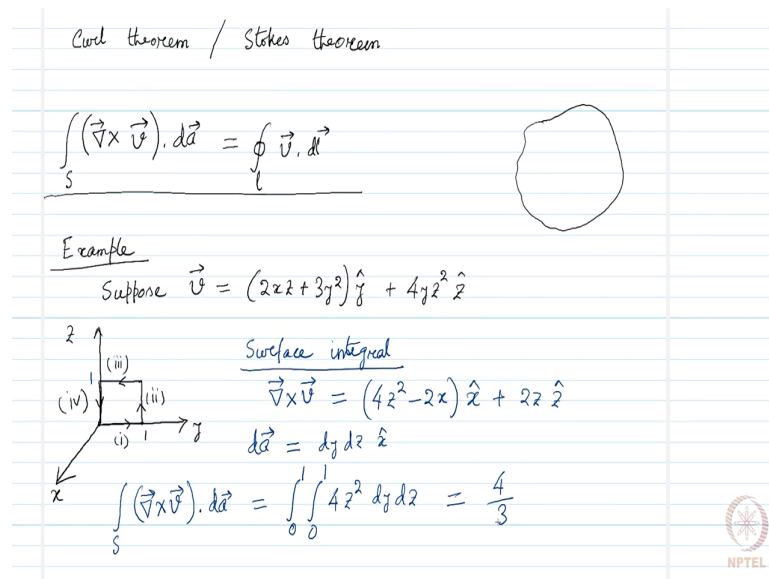 Curl theorem / Stokes theorem
∫_S (∇⃗ × v⃗) . da⃗ = ∮_l v⃗ . dl⃗
Example
Suppose v⃗ = (2xz + 3y²) ŷ + 4yz² ẑ
z
1
(iii)
(iv)
(ii)
(i)
1
y
x
Surface integral
∇⃗ × v⃗ = (4z² − 2x) x̂ + 2z ẑ
da⃗ = dy dz x̂
∫_S (∇⃗ × v⃗) . da⃗ = ∫₀¹ ∫₀¹ 4z² dy dz = 4/3
NPTEL